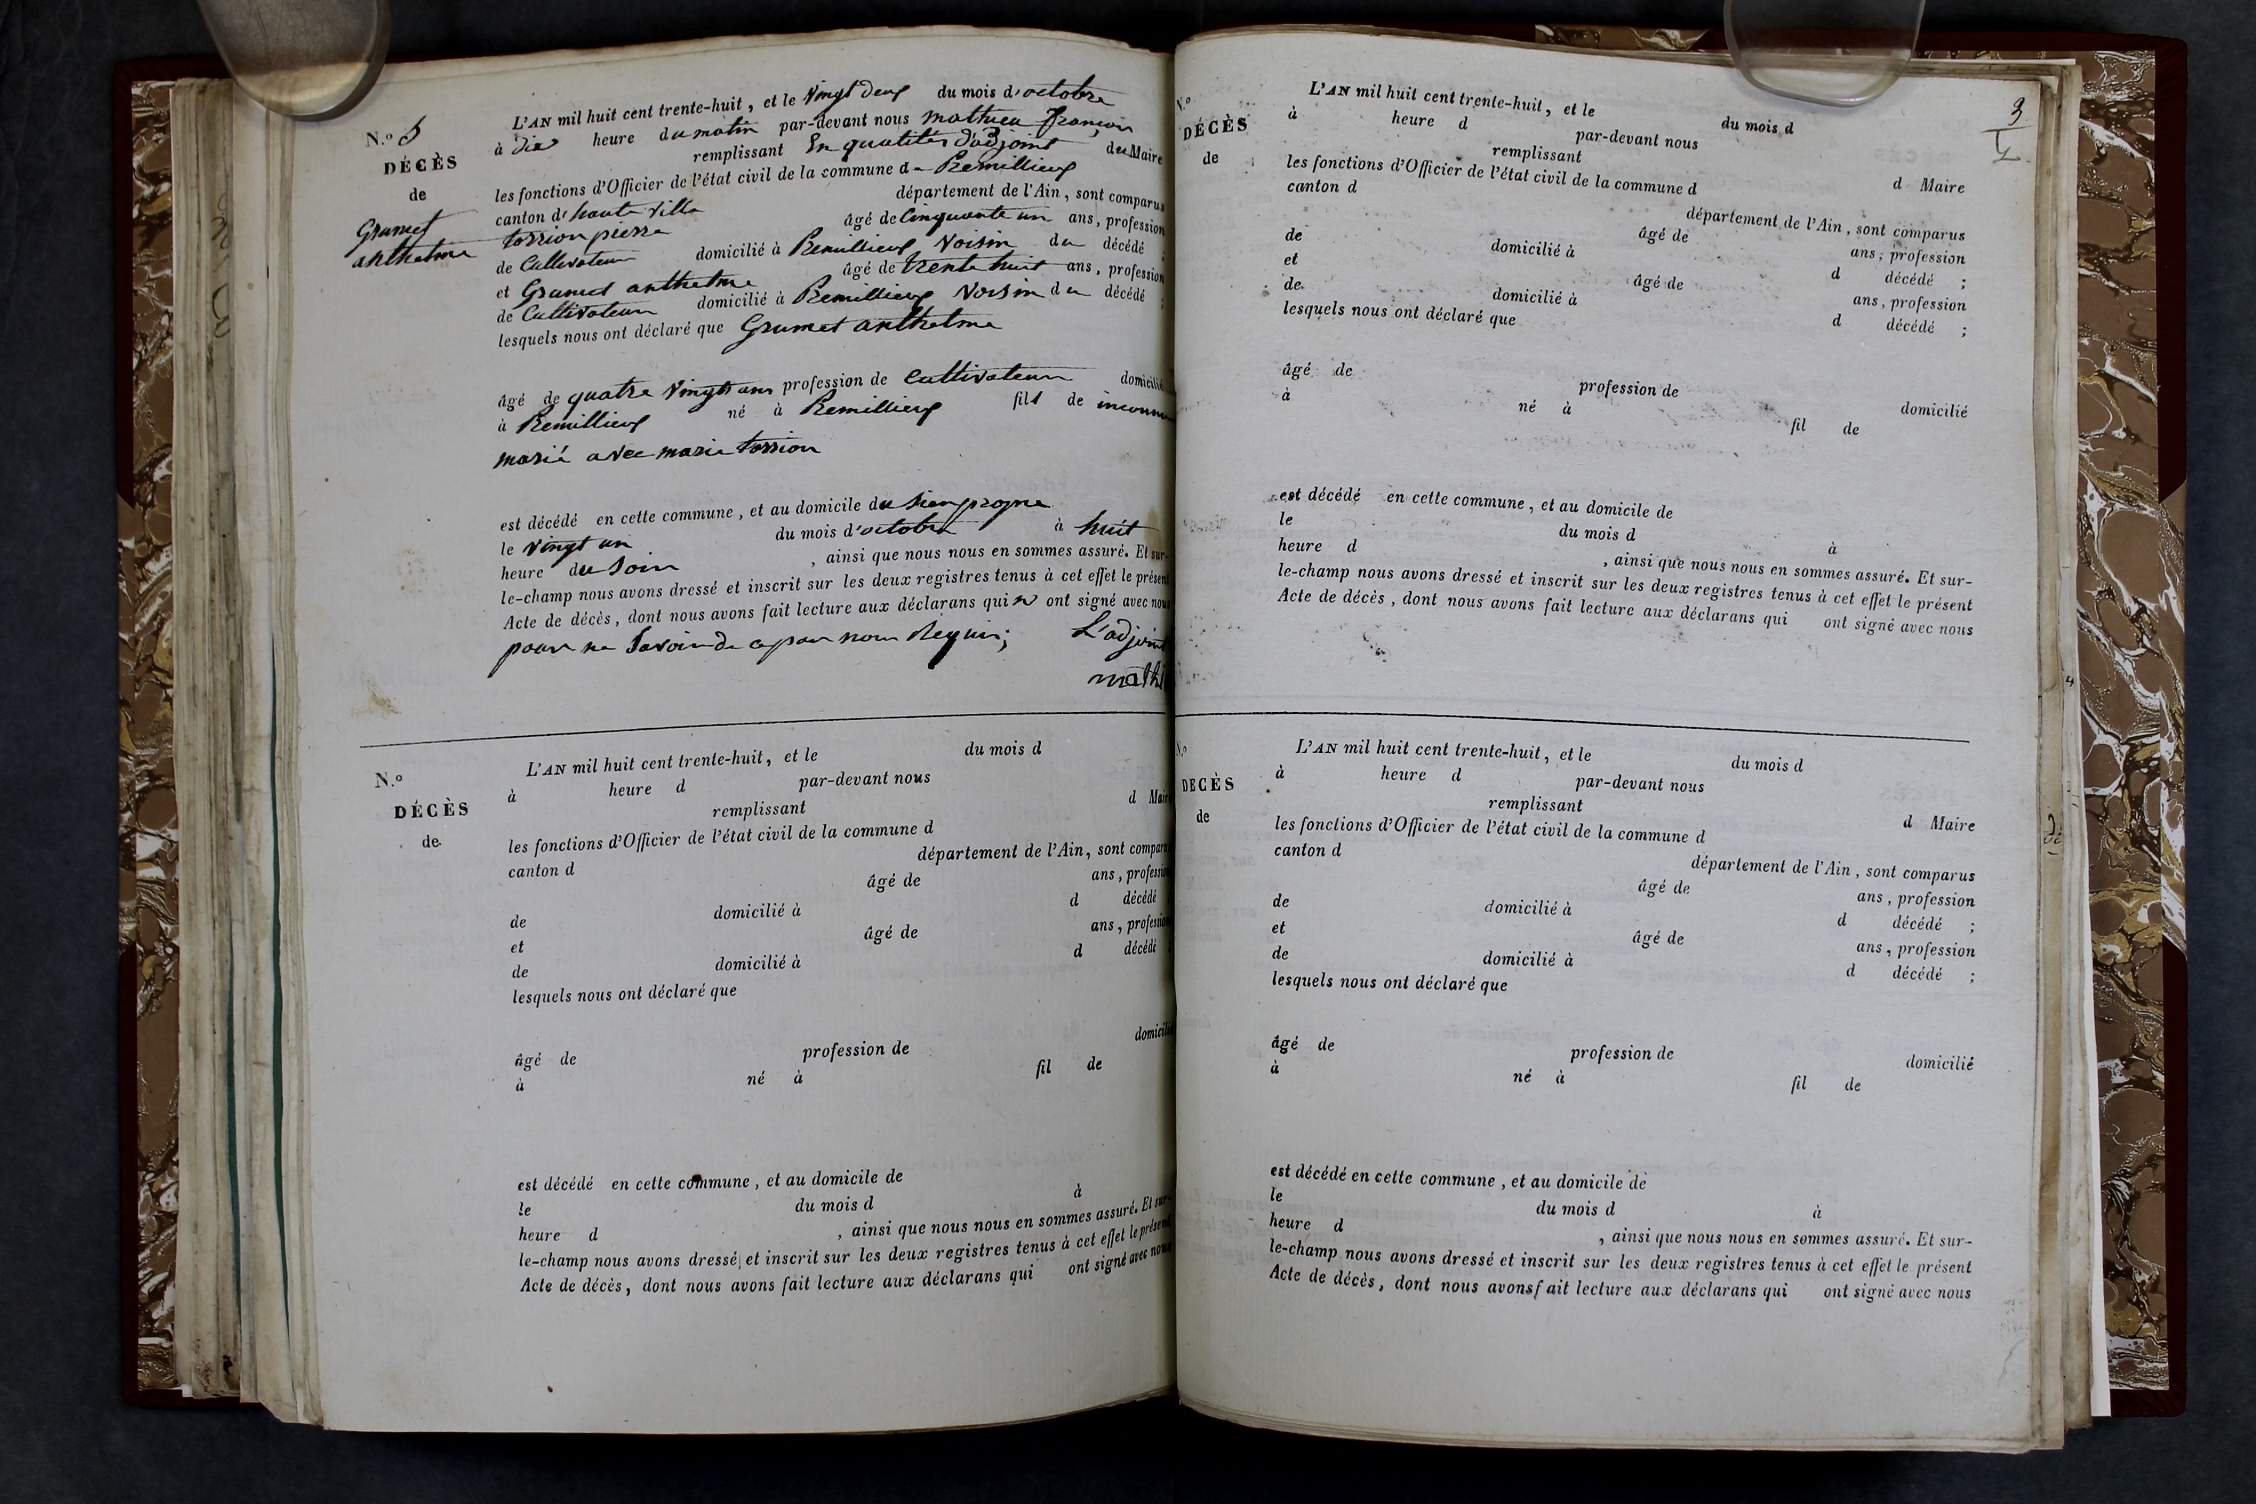 N.º 5
DÉCÈS
de
Grumet
anthelme
L'AN mil huit cent trente-huit, et le Vingt deux du mois d'octobre
à dix heure du matin par-devant nous mathieu françois
remplissant En qualités d'adjoint du Maire
les fonctions d'Officier de l'état civil de la commune de Remillieux
canton d'haute Ville département de l'Ain, sont comparus
torrion pierre âgé de Cinquante un ans, profession
de Cultivateur domicilié à Remillieux Voisin du décédé ;
et Grumet anthelme âgé de trente huit ans, profession
de Cultivateur domicilié à Remillieux Voisin du décédé ;
lesquels nous ont déclaré que Grumet anthelme
âgé de quatre Vingts ans profession de Cultivateur domicilié
à Remillieux né à Remillieux fils de inconnu
marié avec marie torrion
est décédé en cette commune, et au domicile du sien propre
le Vingt un du mois d'octobre à huit
heure du Soir , ainsi que nous nous en sommes assuré. Et sur-
le-champ nous avons dressé et inscrit sur les deux registres tenus à cet effet le présent
Acte de décès, dont nous avons fait lecture aux déclarans qui n' ont signé avec nous
pour ne Savoir de ce par nous Requis; L'adjoint
math
N.º
DÉCÈS
de
L'AN mil huit cent trente-huit, et le du mois d
à heure d par-devant nous
remplissant d Maire
les fonctions d'Officier de l'état civil de la commune d
canton d département de l'Ain, sont comparus
âgé de ans, profession
de domicilié à d décédé ;
et âgé de ans, profession
de domicilié à d décédé ;
lesquels nous ont déclaré que
âgé de profession de domicilié
à né à fil de
est décédé en cette commune, et au domicile de
le du mois d à
heure d , ainsi que nous nous en sommes assuré. Et sur-
le-champ nous avons dressé et inscrit sur les deux registres tenus à cet effet le présent
Acte de décès, dont nous avons fait lecture aux déclarans qui ont signé avec nous
3
N.º
DÉCÈS
de
L'AN mil huit cent trente-huit, et le du mois d
à heure d par-devant nous
remplissant d Maire
les fonctions d'Officier de l'état civil de la commune d
canton d département de l'Ain, sont comparus
âgé de ans, profession
de domicilié à d décédé ;
et âgé de ans, profession
de domicilié à d décédé ;
lesquels nous ont déclaré que
âgé de profession de domicilié
à né à fil de
est décédé en cette commune, et au domicile de
le du mois d à
heure d , ainsi que nous nous en sommes assuré. Et sur-
le-champ nous avons dressé et inscrit sur les deux registres tenus à cet effet le présent
Acte de décès, dont nous avons fait lecture aux déclarans qui ont signé avec nous
N.º
DÉCÈS
de
L'AN mil huit cent trente-huit, et le du mois d
à heure d par-devant nous
remplissant d Maire
les fonctions d'Officier de l'état civil de la commune d
canton d département de l'Ain, sont comparus
âgé de ans, profession
de domicilié à d décédé ;
et âgé de ans, profession
de domicilié à d décédé ;
lesquels nous ont déclaré que
âgé de profession de domicilié
à né à fil de
est décédé en cette commune, et au domicile de
le du mois d à
heure d , ainsi que nous nous en sommes assuré. Et sur-
le-champ nous avons dressé et inscrit sur les deux registres tenus à cet effet le présent
Acte de décès, dont nous avons fait lecture aux déclarans qui ont signé avec nous